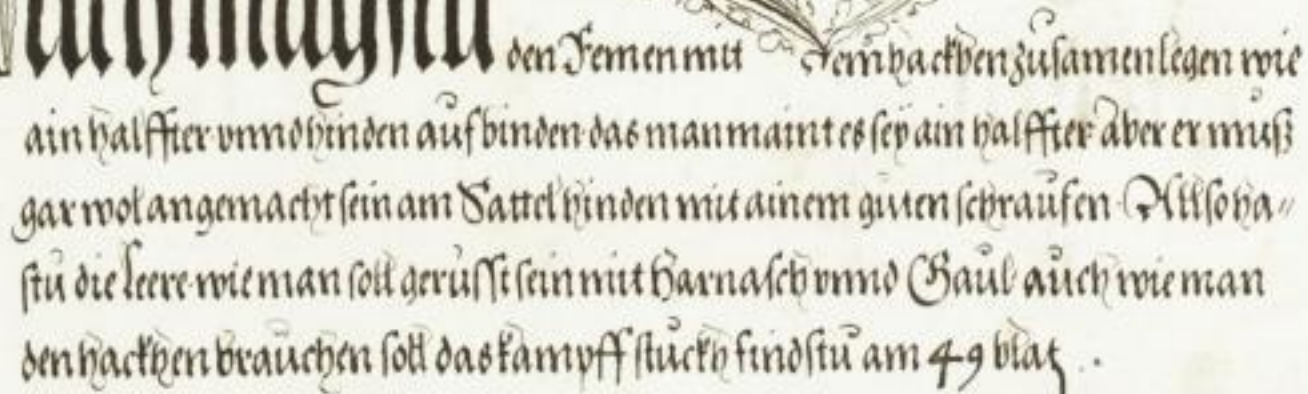 Auch magstu den Remen mitt dem hackhen zusamen legen wie
ain halffter vnnd hinden aufbinden das man maint es seÿ ain halffter aber er muß
gar wol angemacht sein am Sattel hinden mit ainem guten schraufen Allso ha〃
stu die Leere wie man soll gerüsst sein mit Harnasch vnnd Gaul auch wie man
den hackhen brauchen soll das kampff stuckh findstu am 49 blat .